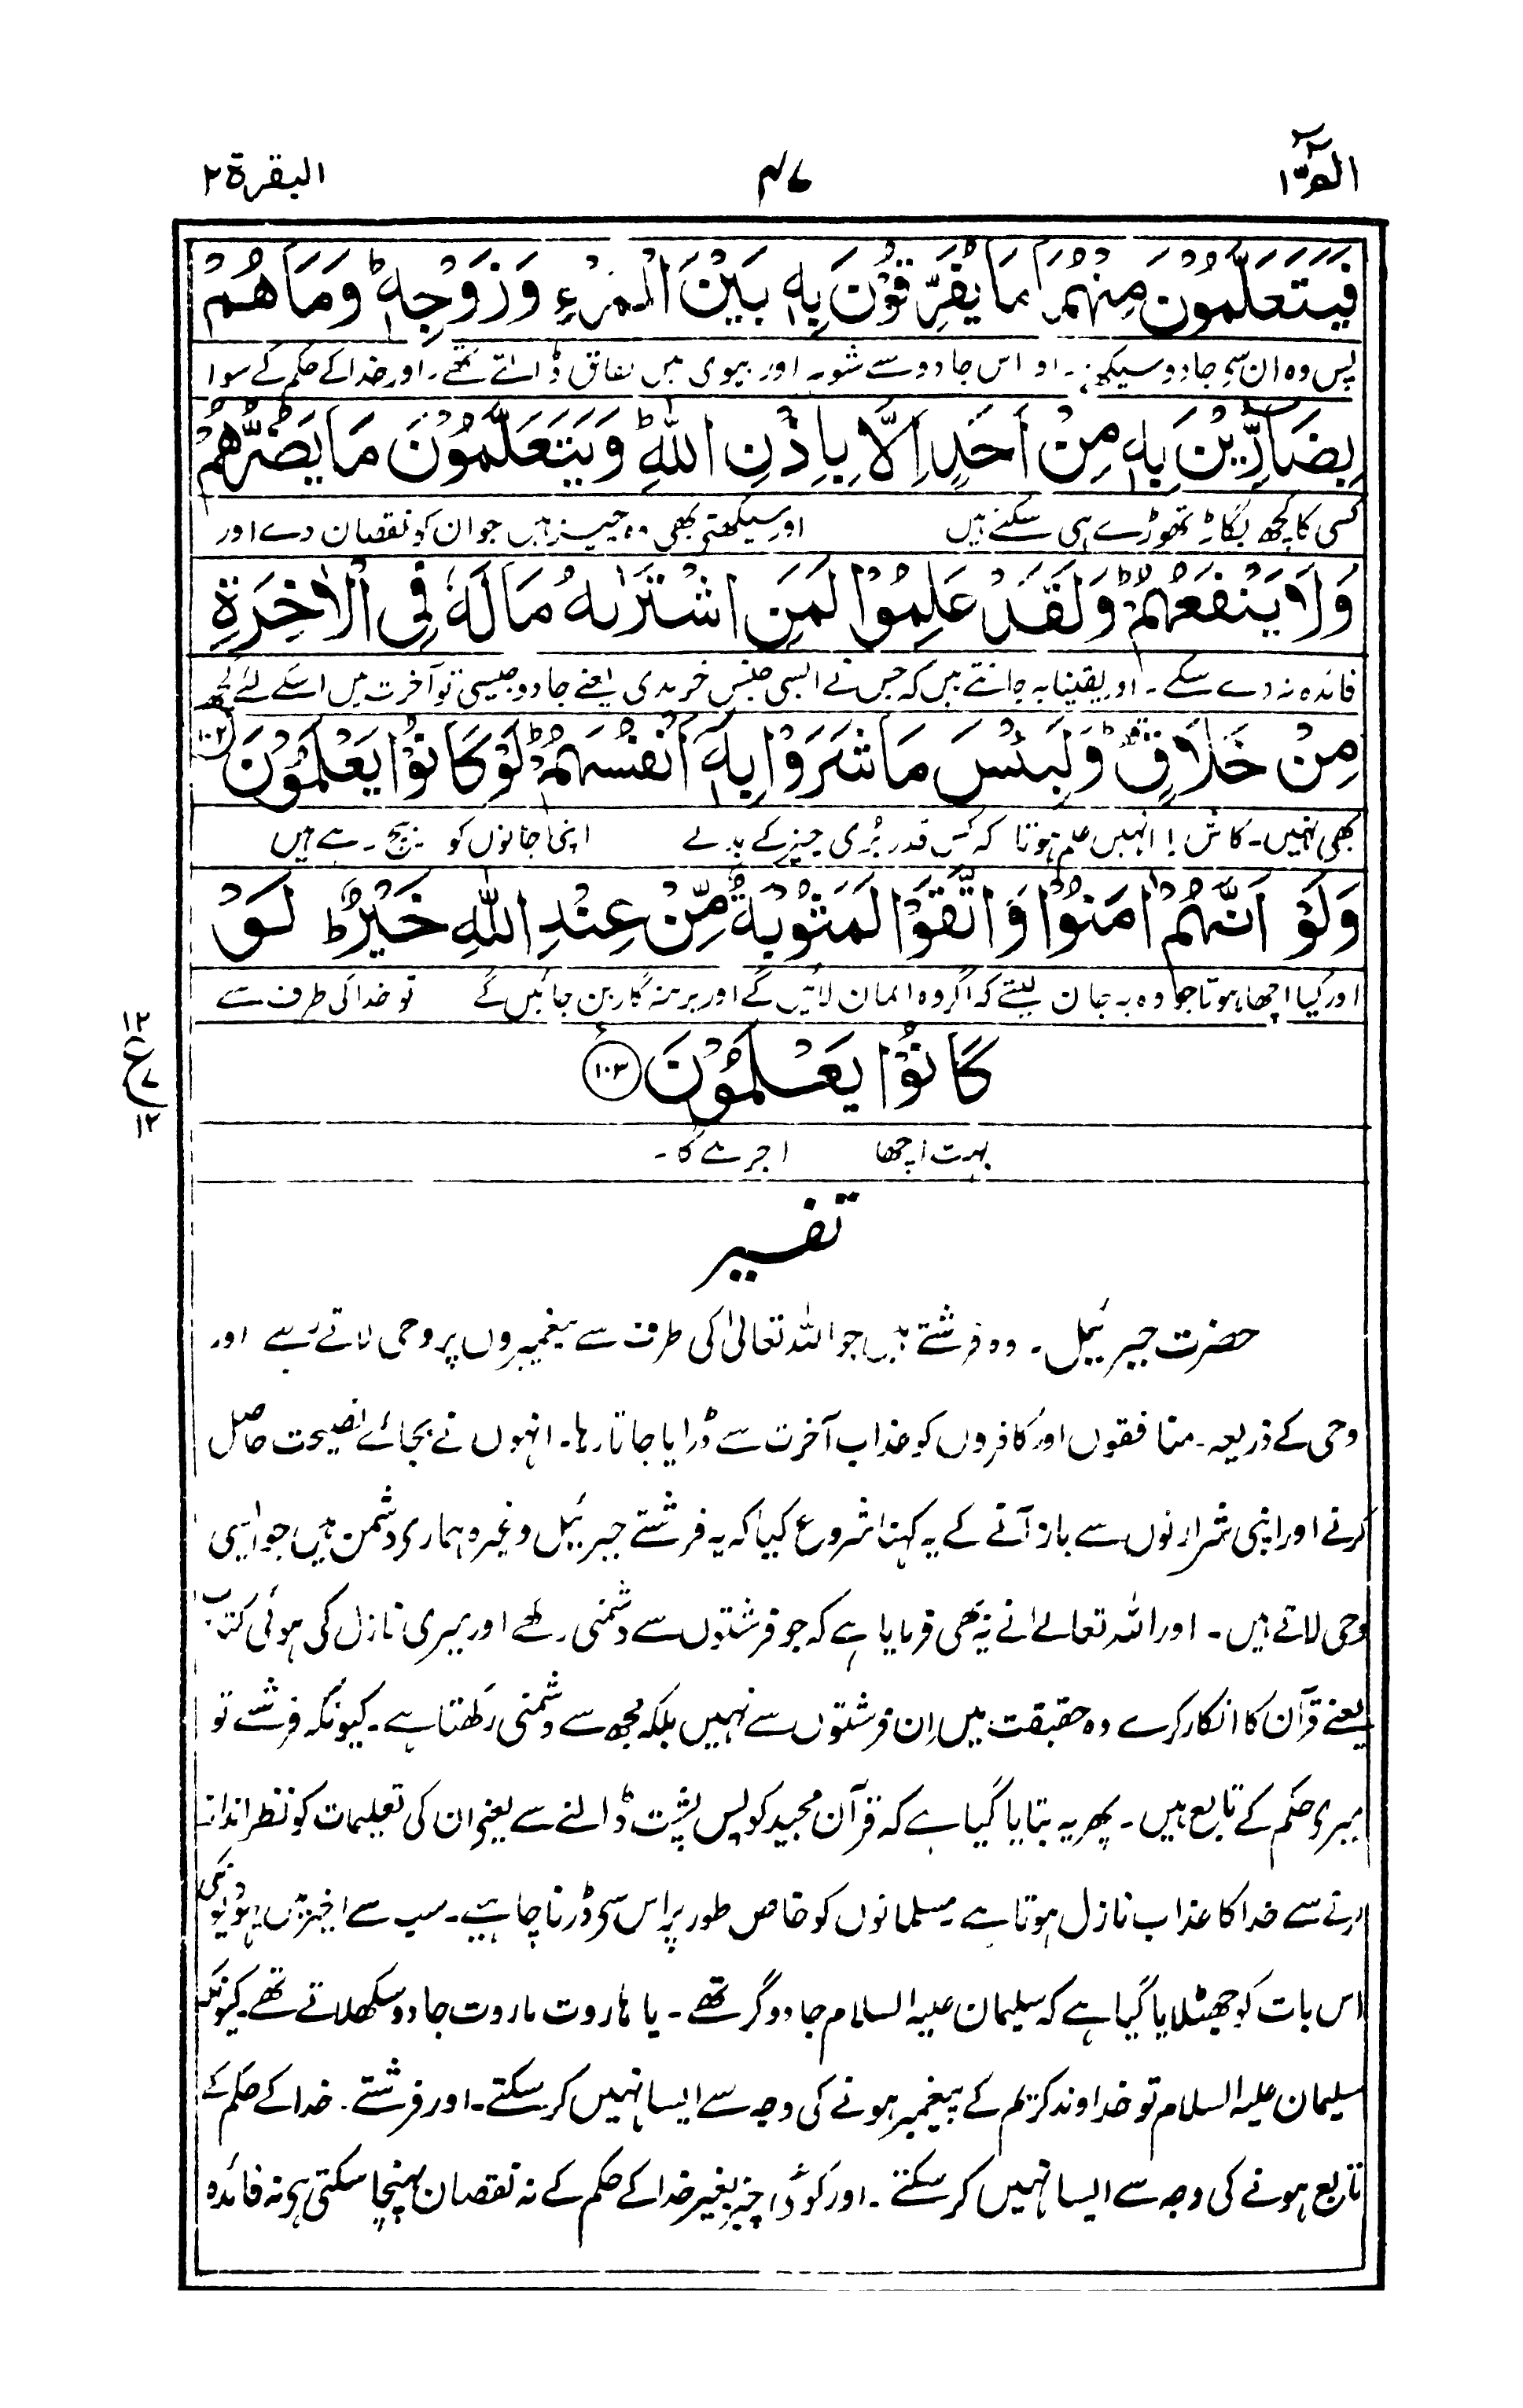 الٓمّٓ ۱
۴۷
البقرة ۲
فَيَتَعَلَّمُوْنَ مِنْهُمَا مَا يُفَرِّقُوْنَ بِهٖ بَيْنَ الْمَرْءِ وَزَوْجِهٖ ؕ وَمَا هُمْ
پس وہ ان سے جادو سیکھتے۔ اس جادو سے شوہر اور بیوی میں نفاق ڈالتے تھے۔ اور خدا کے حکم کے سوا
بِضَآرِّيْنَ بِهٖ مِنْ اَحَدٍ اِلَّا بِاِذْنِ اللّٰهِ ؕ وَيَتَعَلَّمُوْنَ مَا يَضُرُّهُمْ
کسی کا کچھ بگاڑ تھوڑے ہی سکتے ہیں اور سیکھتے بھی وہ چیز ہیں جو ان کو نقصان دے اور
وَلَا يَنْفَعُهُمْ ؕ وَلَقَدْ عَلِمُوْا لَمَنِ اشْتَرٰىهُ مَا لَهٗ فِي الْاٰخِرَةِ
فائدہ نہ دے سکے۔ اور یقینا یہ جانتے ہیں کہ جس نے ایسی جنس خریدی یعنے جادو جیسی تو آخرت میں اسکے لئے کچھ
مِنْ خَلَاقٍ ؕ وَلَبِئْسَ مَا شَرَوْا بِهٖٓ اَنْفُسَهُمْ ؕ لَوْ كَانُوْا يَعْلَمُوْنَ ۱۰۲
بھی نہیں۔ کاش! انہیں علم ہوتا کہ کس قدر بُری چیز کے بدلے اپنی جانوں کو بیچ رہے ہیں
وَلَوْ اَنَّهُمْ اٰمَنُوْا وَاتَّقَوْا لَمَثُوْبَةٌ مِّنْ عِنْدِ اللّٰهِ خَيْرٌ ؕ لَوْ
اور کیا اچھا ہوتا جو وہ یہ جان لیتے کہ اگر وہ ایمان لائیں گے اور پرہیزگار بن جائیں گے تو خدا کی طرف سے
كَانُوْا يَعْلَمُوْنَ ۱۰۳
۱۲
ع
۷
۱۲
بہت اچھا اجر ملے گا۔
تفسیر
حضرت جبرئیل۔ وہ فرشتے ہیں جو اللہ تعالیٰ کی طرف سے پیغمبروں پر وحی لاتے رہے اور
وحی کے ذریعہ۔ منافقوں اور کافروں کو عذاب آخرت سے ڈرایا جاتا رہا۔ انہوں نے بجائے نصیحت حاصل
کرنے اور اپنی شرارتوں سے باز آنے کے یہ کہنا شروع کیا کہ یہ فرشتے جبرئیل وغیرہ ہماری دشمن ہیں جو ایسی
وحی لاتے ہیں۔ اور اللہ تعالےٰ نے یہ بھی فرمایا ہے کہ جو فرشتوں سے دشمنی رکھے اور میری نازل کی ہوئی کتاب
یعنے قرآن کا انکار کرے وہ حقیقت میں اِن فرشتوں سے نہیں بلکہ مجھ سے دشمنی رکھتا ہے۔ کیونکہ فرشتے تو
میری حکم کے تابع ہیں۔ پھر یہ بتایا گیا ہے کہ قرآن مجید کو پس پشت ڈالنے سے یعنے ان کی تعلیمات کو نظر انداز
کرنے سے خدا کا عذاب نازل ہوتا ہے۔ مسلمانوں کو خاص طور پر اس سے ڈرنا چاہیے۔ سب سے اخیر میں یہودیوں کی
اس بات کو جھٹلایا گیا ہے کہ سلیمان علیہ السلام جادوگر تھے۔ یا ہاروت ماروت جادو سکھلاتے تھے۔ کیونکہ
سلیمان علیہ السلام تو خداوند کریم کے پیغمبر ہونے کی وجہ سے ایسا نہیں کر سکتے۔ اور فرشتے خدا کے حکم کے
تابع ہونے کی وجہ سے ایسا نہیں کر سکتے۔ اور کوئی چیز بغیر خدا کے حکم کے نہ نقصان پہنچا سکتی ہے نہ فائدہ